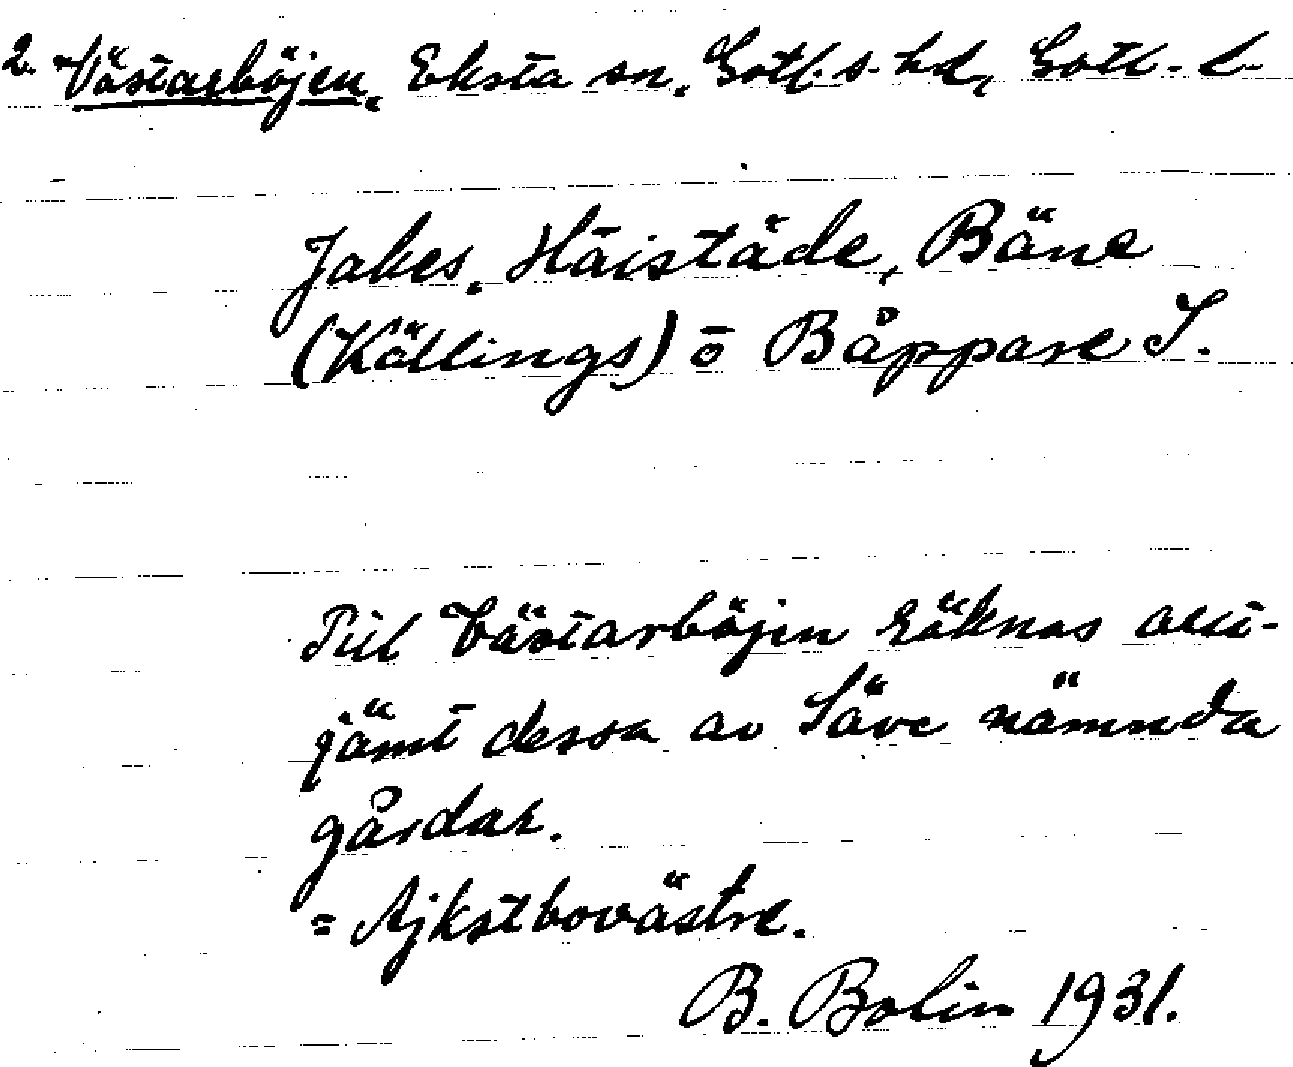 2. Västarböjen, Eksta sn, Gotl. s. hd, Gotl. l.
Jakes, Häistäde, Bäne
(Källings) o Båppare S.
Till Västarböjen räknas allt-
jämt dessa av Säve nämnda
gårdar.
= Ajkstbovästre.
B. Bolin 1931.